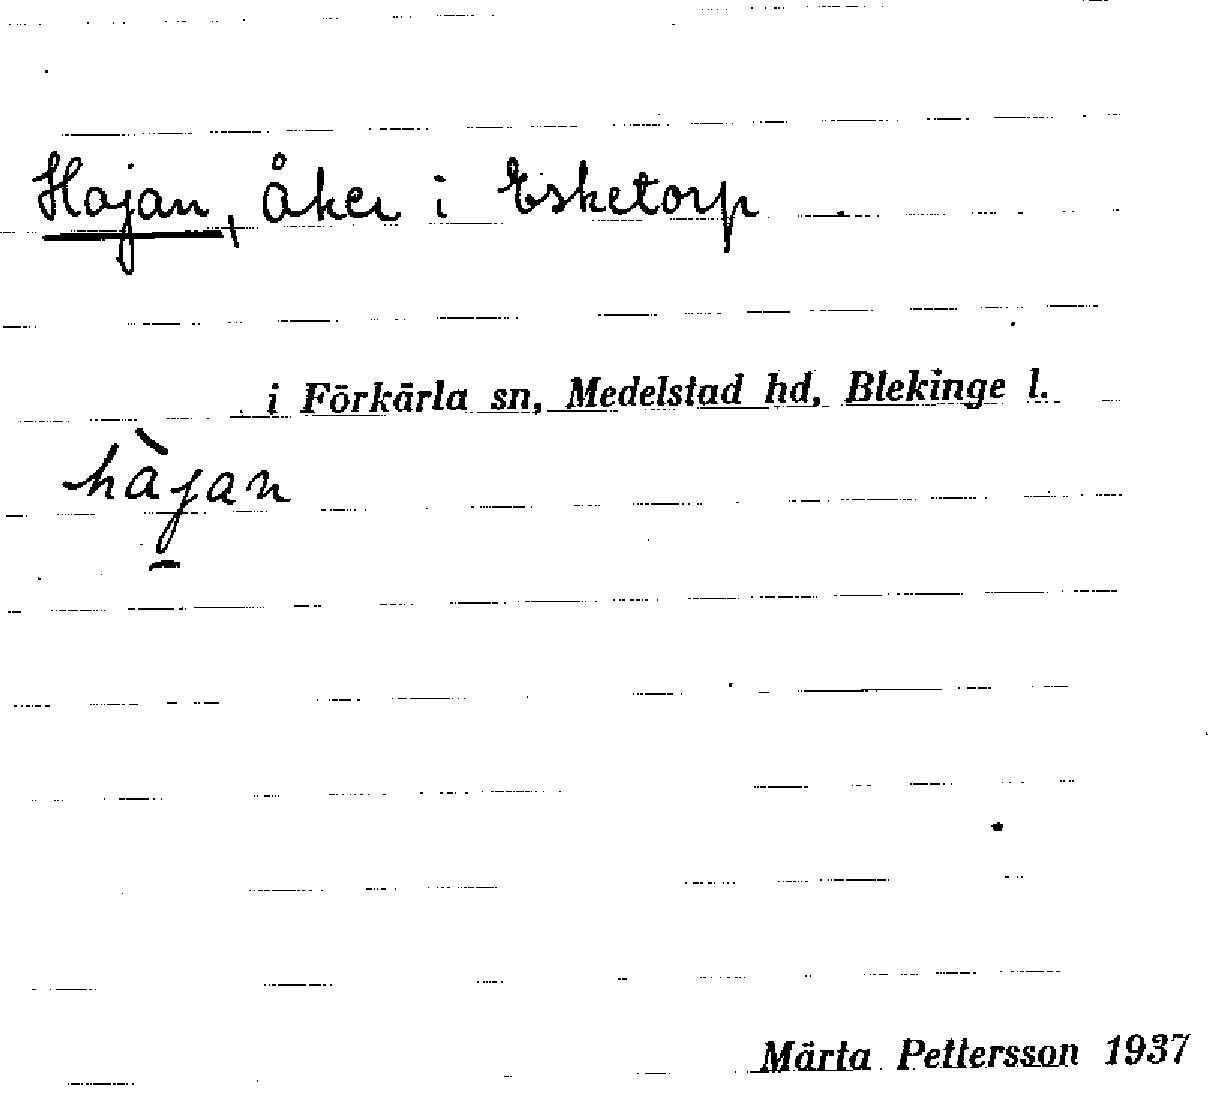 Hajan, åker i Esketorp
i Förkärla sn, Medelstad hd, Blekinge l.
hàjan
Märta Pettersson 1937